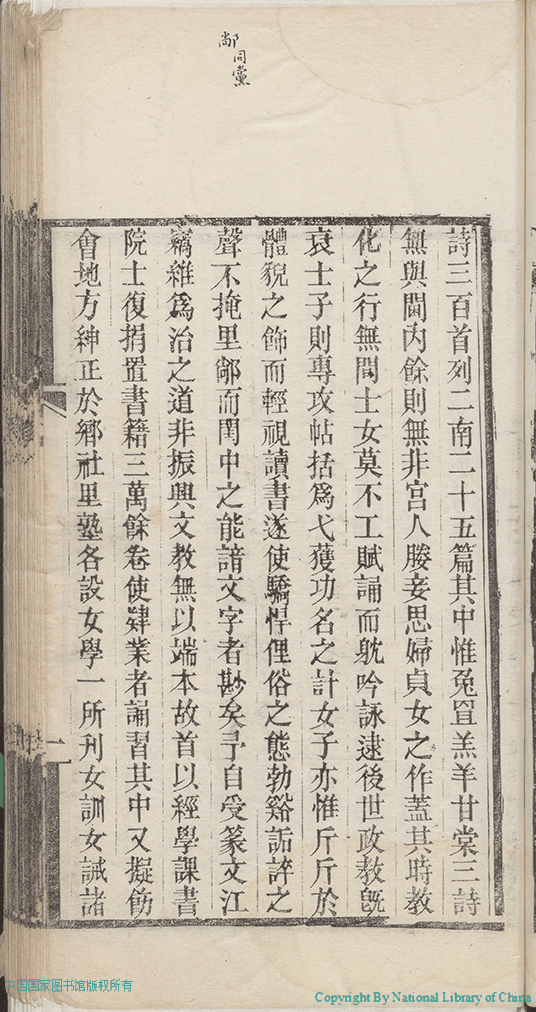 鄅同黨
詩三百首列二南二十五篇其中惟兔罝羔羊甘棠三詩
無與閫內餘則無非宮人媵妾思婦貞女之作蓋其時教
化之行無間士女莫不工賦誦而躭吟詠逮後世政教旣
衰士子則專攻帖括爲弋獲功名之計女子亦惟斤斤於
體貌之飾而輕視讀書遂使驕悍俚俗之態勃谿詬誶之
聲不掩里鄅而閨中之能諳文字者尠矣予自受篆文江
竊維爲治之道非振興文教無以端本故首以經學課書
院士復捐置書籍三萬餘卷使肄業者誦習其中又擬飭
會地方紳正於鄉社里塾各設女學一所刊女訓女誡諸
二
中国国家图书馆版权所有
Copyright By National Library of China